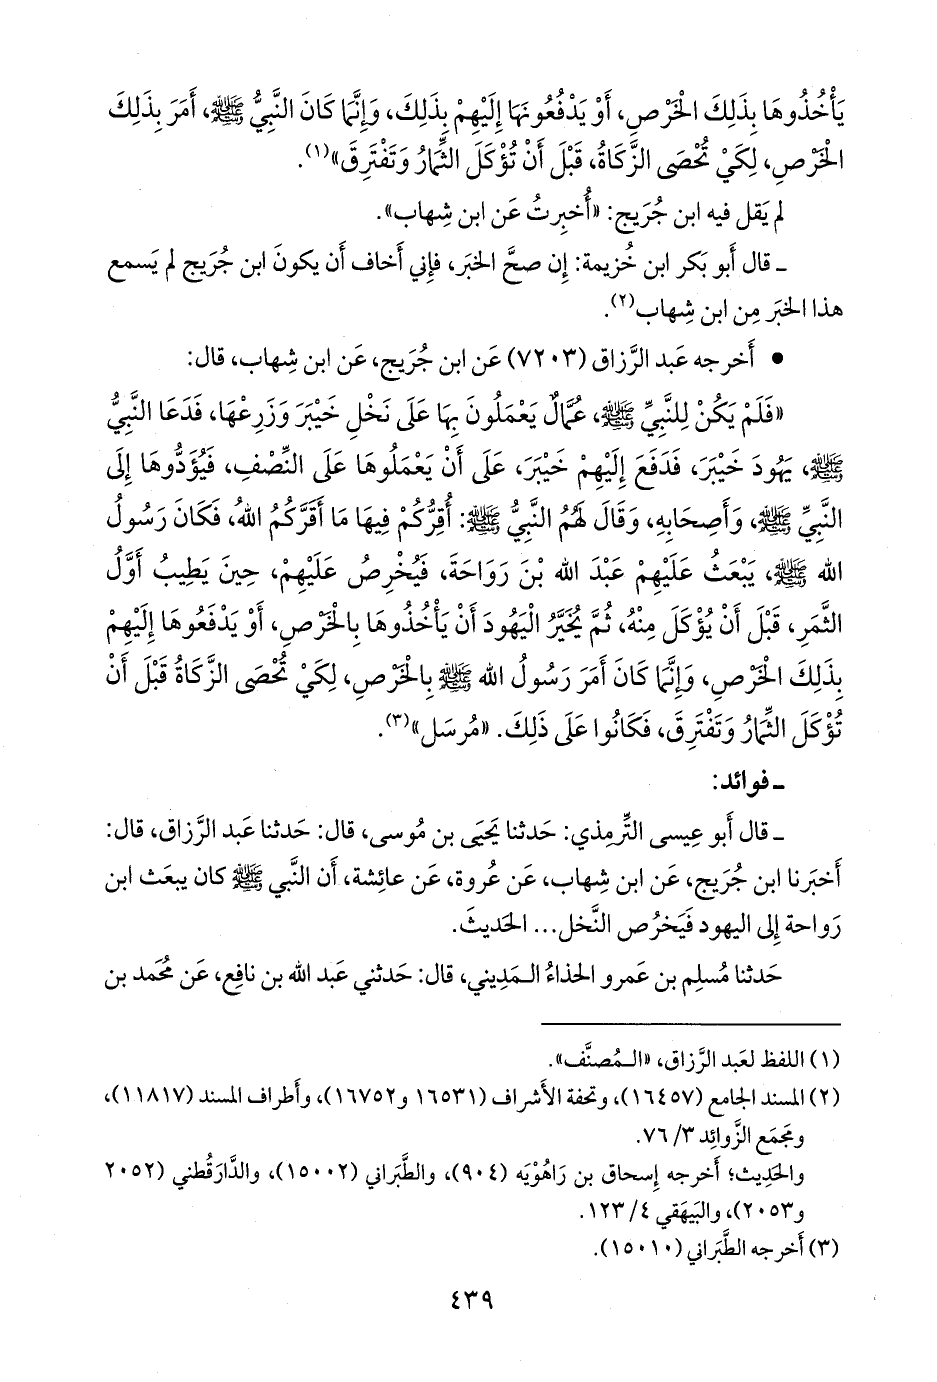 يَأْخُذُوهَا بِذَلِكَ الْخَرْصِ، أَوْ يَدْفَعُونَهَا إِلَيْهِمْ بِذَلِكَ، وَإِنَّمَا كَانَ النَّبِيُّ ﷺ، أَمَرَ بِذَلِكَ
الْخَرْصِ، لِكَيْ تُحْصَى الزَّكَاةُ، قَبْلَ أَنْ تُؤْكَلَ الثِّمَارُ وَتَفْتَرِقَ»(١).
لم يَقل فيه ابن جُرَيج: «أُخبِرتُ عَن ابن شِهاب».
ـ قال أَبو بَكر ابن خُزيمة: إِن صحَّ الخبَر، فإِني أَخاف أَن يكونَ ابن جُرَيج لم يَسمع
هذا الخبَر مِن ابن شِهاب(٢).
• أَخرجه عَبد الرَّزاق (٧٢٠٣) عَن ابن جُرَيج، عَن ابن شِهاب، قال:
«فَلَمْ يَكُنْ لِلنَّبِيِّ ﷺ، عُمَّالٌ يَعْمَلُونَ بِهَا عَلَى نَخْلِ خَيْبَرَ وَزَرِعْهَا، فَدَعَا النَّبِيُّ
ﷺ، يَهُودَ خَيْبَرَ، فَدَفَعَ إِلَيْهِمْ خَيْبَرَ، عَلَى أَنْ يَعْمَلُوهَا عَلَى النِّصْفِ، فَيُؤَدُّوهَا إِلَى
النَّبِيِّ ﷺ، وَأَصِحَابِهِ، وَقَالَ لَهُمُ النَّبِيُّ ﷺ: أُقِرُّكُمْ فِيهَا مَا أَقَرَّكُمُ اللهُ، فَكَانَ رَسُولُ
الله ﷺ، يَبْعَثُ عَلَيْهِمْ عَبْدَ الله بْنَ رَوَاحَةَ، فَيُخْرِصُ عَلَيْهِمْ، حِينَ يَطِيبُ أَوَّلُ
الثَّمَرِ، قَبْلَ أَنْ يُؤْكَلَ مِنْهُ، ثُمَّ يُخَيَّرُ الْيَهُودَ أَنْ يَأْخُذُوهَا بِالْخَرْصِ، أَوْ يَدْفَعُوهَا إِلَيْهِمْ
بِذَلِكَ الْخَرْصِ، وَإِنَّمَا كَانَ أَمَرَ رَسُولُ الله ﷺ بِالْخَرْصِ، لِكَيْ تُحْصَى الزَّكَاةُ قَبْلَ أَنْ
تُؤْكَلَ الثِّمَارُ وَتَفْتَرِقَ، فَكَانُوا عَلَى ذَلِكَ. «مُرسَل»(٣).
ـ فوائد:
ـ قال أَبو عِيسى التِّرمِذي: حَدثنا يَحيَى بن مُوسى، قال: حَدثنا عَبد الرَّزاق، قال:
أَخبَرنا ابن جُرَيج، عَن ابن شِهاب، عَن عُروة، عَن عائِشة، أَن النَّبي ﷺ كان يبعَث ابن
رَواحة إِلى اليهود فَيَخرُص النَّخل... الحَديثَ.
حَدثنا مُسلِم بن عَمرو الحذاءُ الـمَدِيني، قال: حَدثني عَبد الله بن نافِع، عَن مُحَمد بن
(١) اللفظ لعَبد الرَّزاق، «الـمُصنَّف».
(٢) المسند الجامع (١٦٤٥٧)، وتحفة الأَشراف (١٦٥٣١ و١٦٧٥٢)، وأَطراف المسند (١١٨١٧)،
ومَجمَع الزَّوائِد ٣/ ٧٦.
والحَدِيث؛ أَخرجه إِسحاق بن رَاهُوْيَه (٩٠٤)، والطَّبَراني (١٥٠٠٢)، والدَّارَقُطني (٢٠٥٢
و٢٠٥٣)، والبَيهَقي ٤/ ١٢٣.
(٣) أَخرجه الطَّبَراني (١٥٠١٠).
٤٣٩